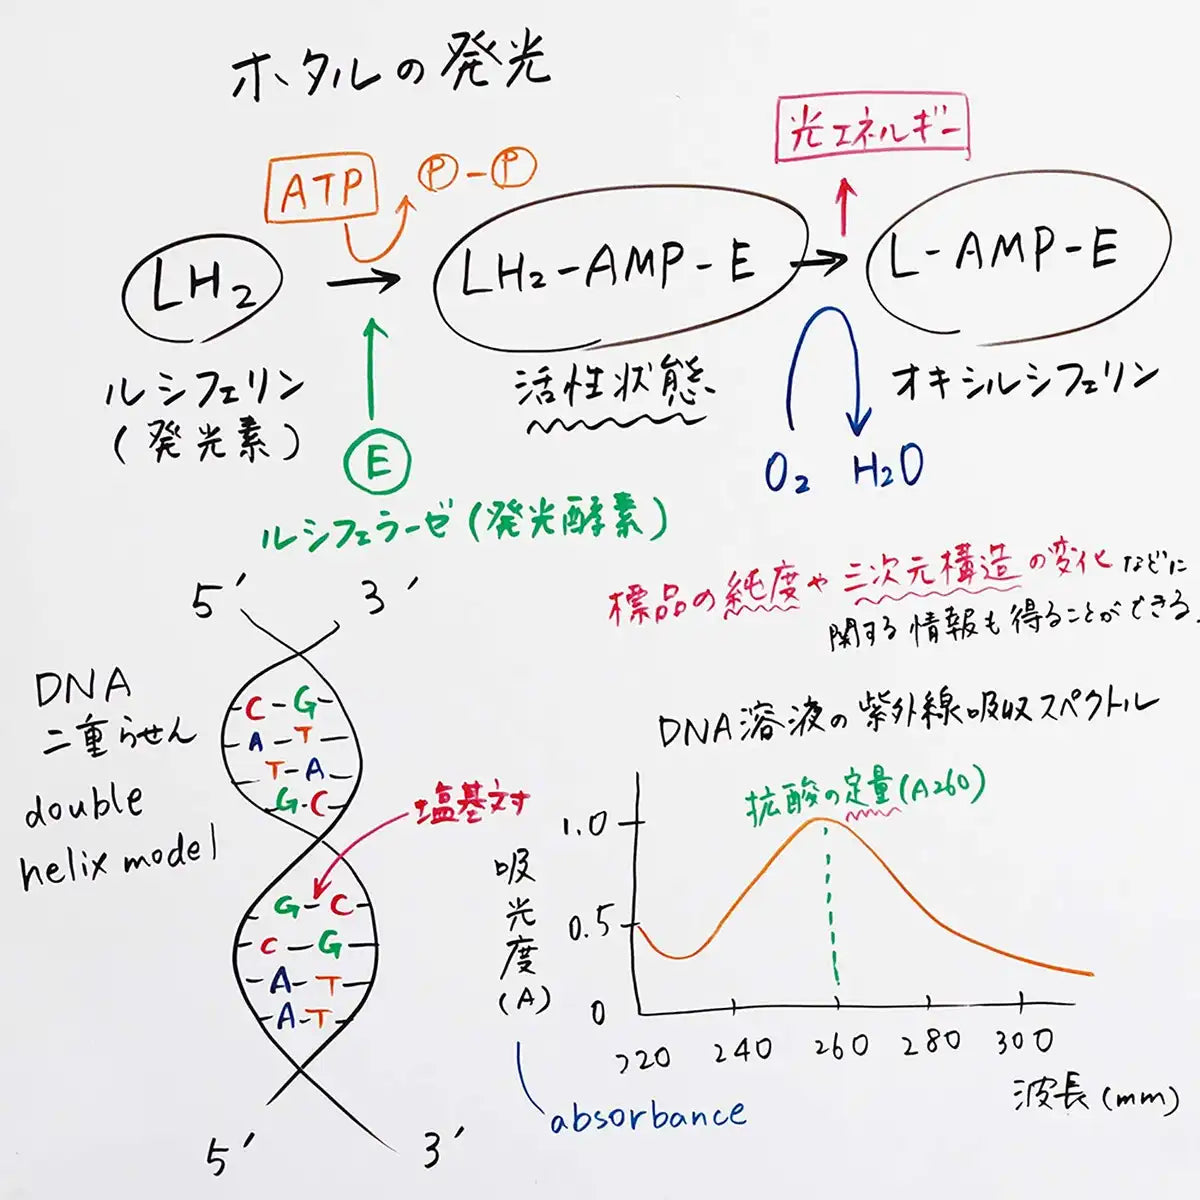 ホタルの発光
光エネルギー
ATP
P-P
LH2
LH2-AMP-E
L-AMP-E
ルシフェリン
(発光素)
活性状態
オキシルシフェリン
E
O2 H2O
ルシフェラーゼ(発光酵素)
標品の純度や三次元構造の変化などに
関する情報も得ることができる.
5' 3'
DNA
二重らせん
double
helix model
C-G
A-T
T-A
G-C
塩基対
G-C
C-G
A-T
A-T
5' 3'
DNA溶液の紫外線吸収スペクトル
拡酸の定量(A260)
1.0
0.5
0
吸光度(A)
220 240 260 280 300
波長(mm)
absorbance